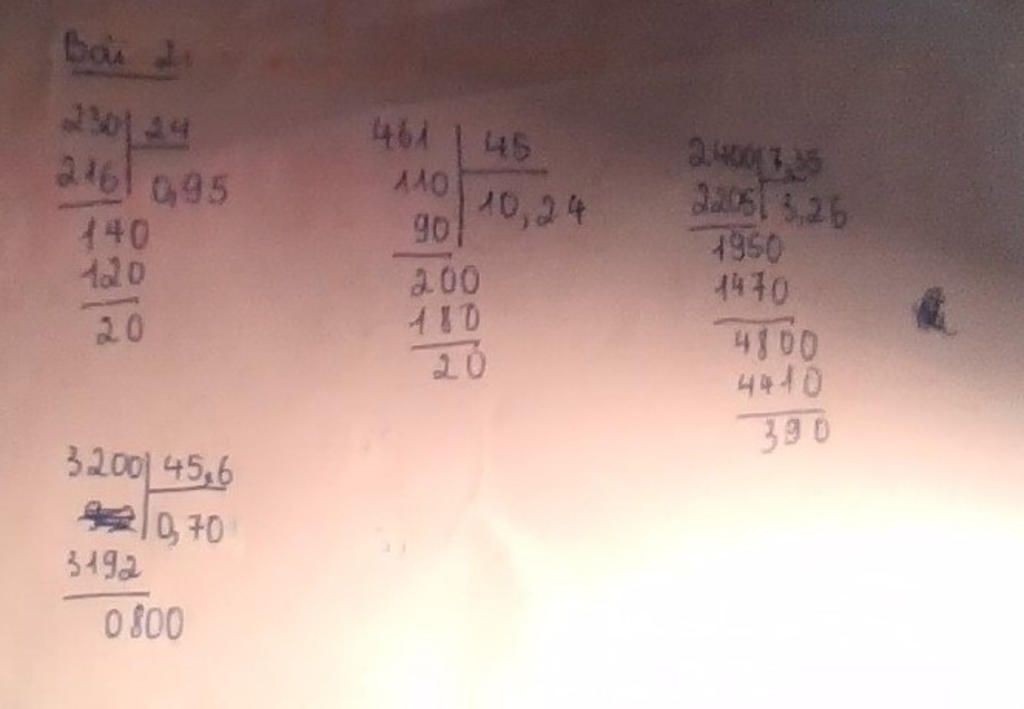 Bài 2:
230 24
216 0,95
140
120
20
461 45
110 10,24
90
200
180
20
2400 7,35
2205 3,26
1950
1470
4800
4410
390
3200 45,6
0,70
3192
0800